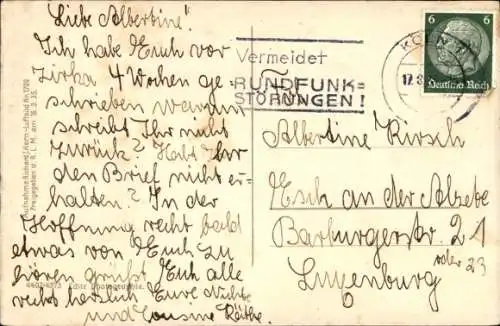 Liebe Albertine!
Ich habe Euch vor
zirka 4 Wochen ge-
schrieben warum
schreibt Ihr nicht
zurück? Habt Ihr
den Brief nicht er-
halten? In der
Hoffnung recht bald
etwas von Euch zu
hören grüßt Euch alle
recht herzlich Eure Nichte
und Cousine Käthe.
Vermeidet
RUNDFUNK=
STÖRUNGEN!
KÖLN
17.8
6 6
Deutsches Reich
Albertine Kirsch
Esch an der Alzette
Barburgerstr. 21
oder 23
Luxemburg
Freigegeben d. R.L.M. am
Echte Photographie.